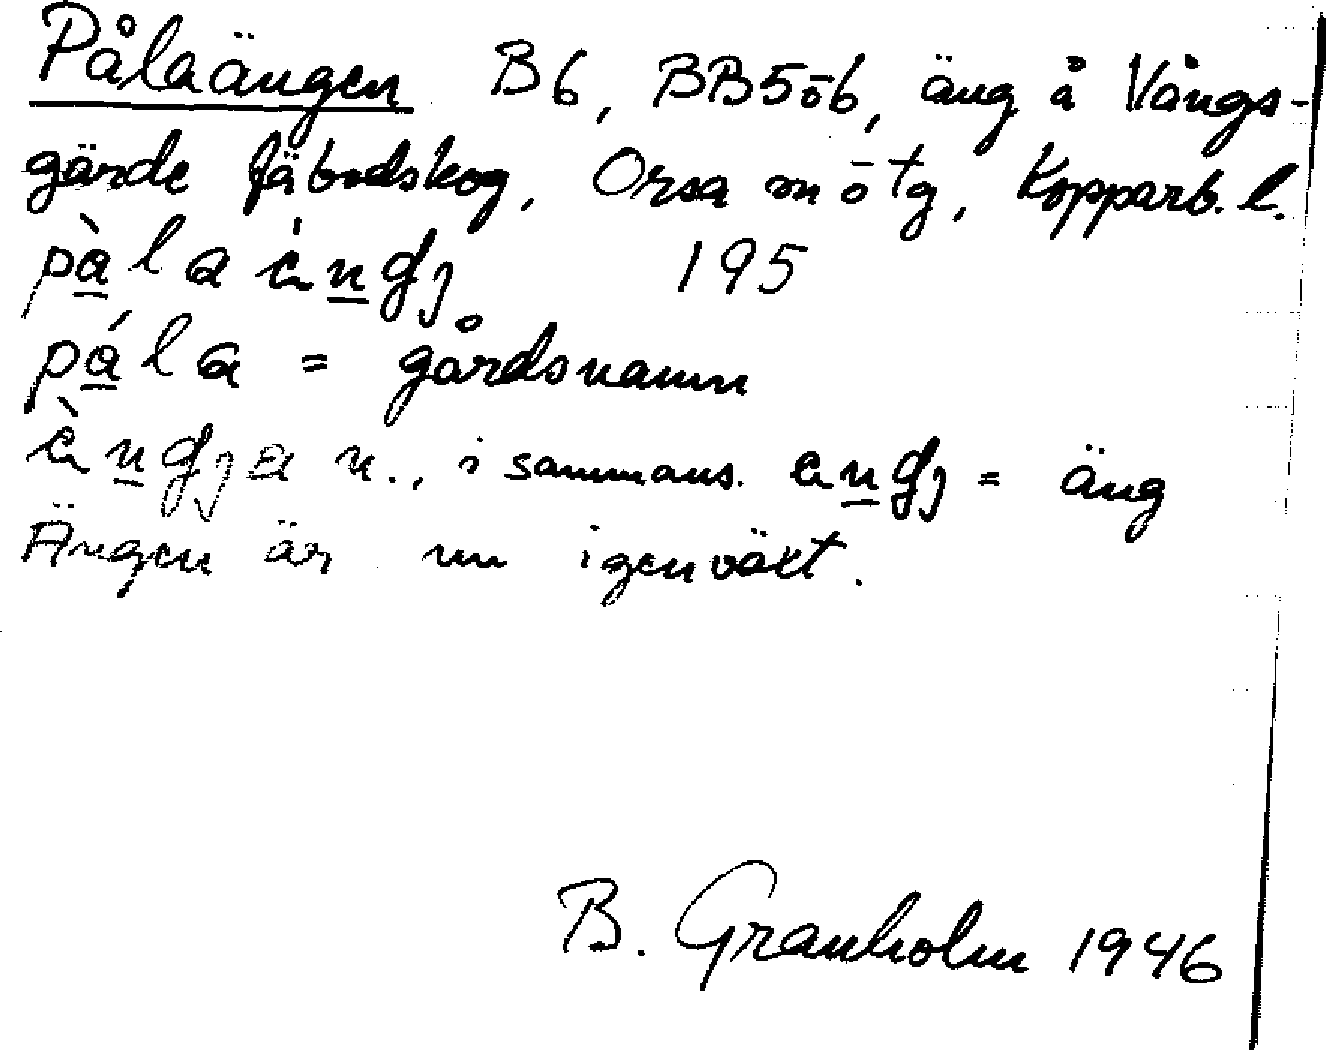 Pålaängen B6, BB5ö6, äng å Vångs-
gärde fäbodskog, Orsa m ö tg, Kopparb. l.
195
pá̱la = gårdsnamn
n., i sammans. = äng
Ängen är nu igenväxt.
B. Granholm 1946